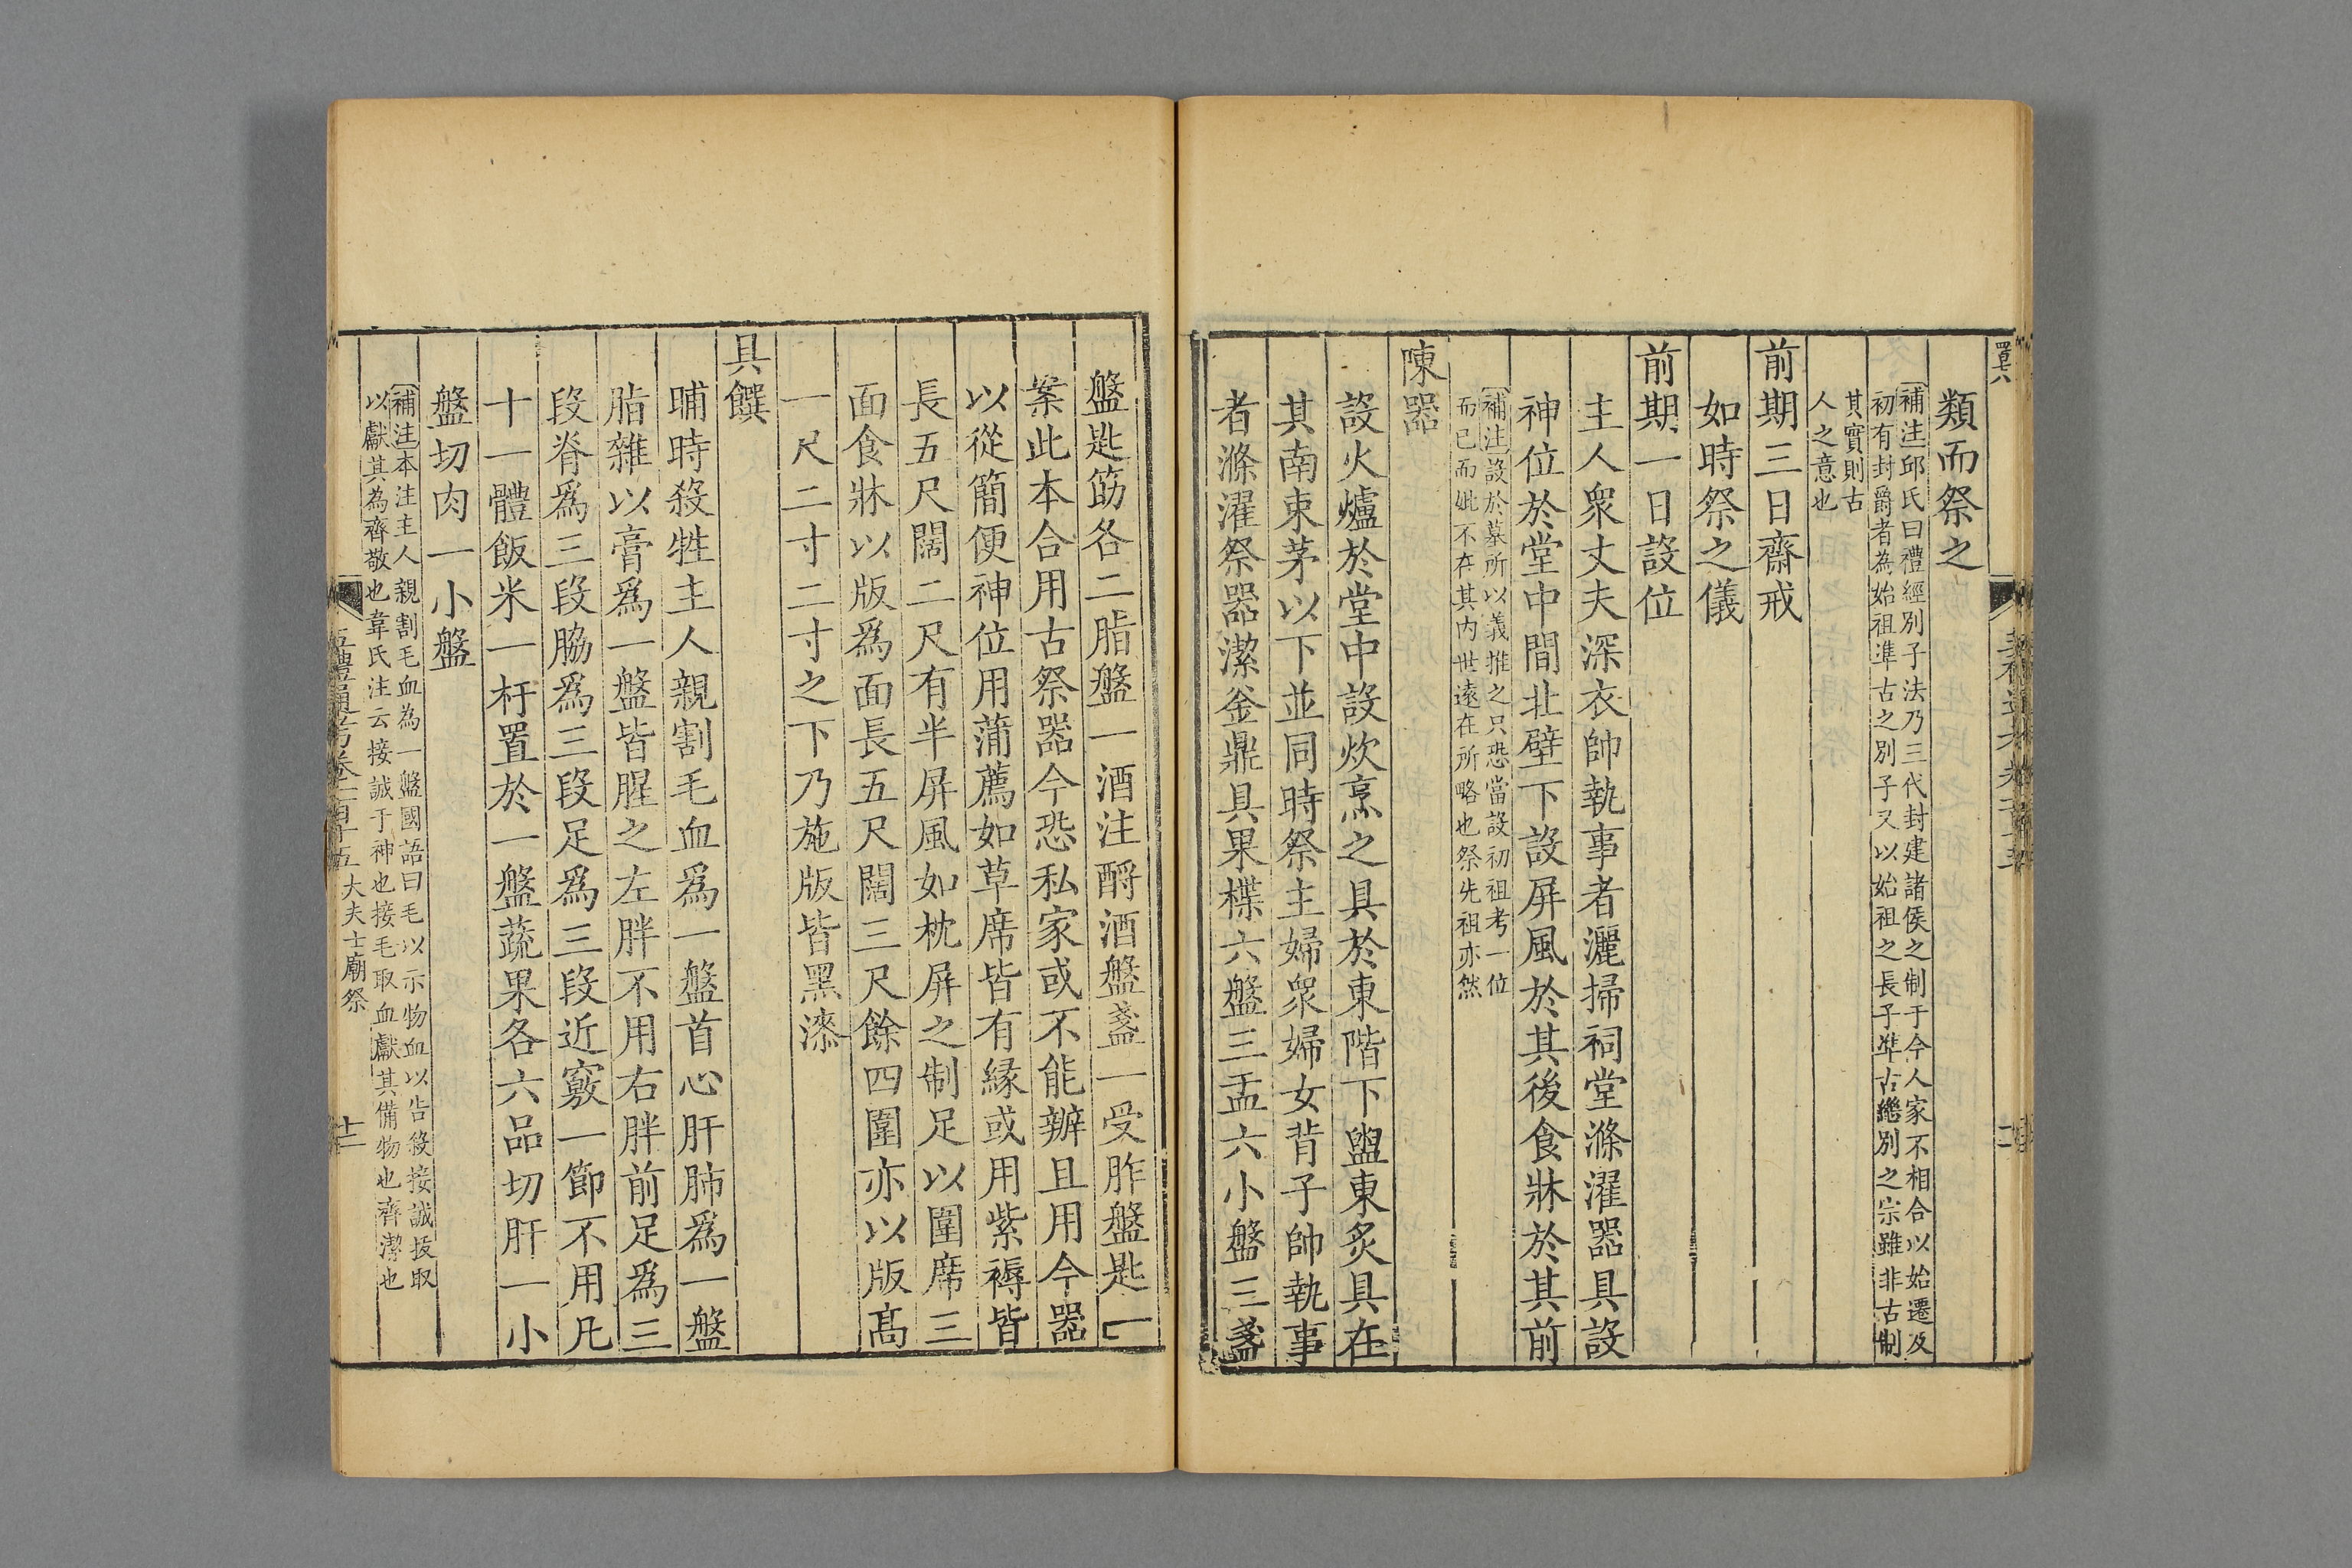 類而祭之
補注邱氏曰禮經別子法乃三代封建諸侯之制于今人家不相合以始遷及
初有封爵者為始祖準古之別子又以始祖之長子準古繼別之宗雖非古制
其實則古
人之意也
前期三日齋戒
如時祭之儀
前期一日設位
主人衆丈夫深衣帥執事者灑掃祠堂滌濯器具設
神位於堂中間北壁下設屏風於其後食牀於其前
補注設於墓所以義推之只恐當設初祖考一位
而已而妣不在其内世遠在所略也祭先祖亦然
陳器
設火爐於堂中設炊烹之具於東階下盥東炙具在
其南束茅以下並同時祭主婦衆婦女背子帥執事
者滌濯祭器潔釜鼎具果楪六盤三盂六小盤三盞
盤匙筯各二脂盤一酒注酹酒盤盞一受胙盤匙一
案此本合用古祭器今恐私家或不能辦且用今器
以從簡便神位用蒲薦如草席皆有緣或用紫褥皆
長五尺闊二尺有半屏風如枕屏之制足以圍席三
面食牀以版爲面長五尺闊三尺餘四圍亦以版高
一尺二寸二寸之下乃施版皆黑漆
具饌
晡時殺牲主人親割毛血爲一盤首心肝肺爲一盤
脂雜以膏爲一盤皆腥之左胖不用右胖前足爲三
段脊爲三段脇爲三段足爲三段近竅一節不用凡
十一體飯米一杅置於一盤蔬果各六品切肝一小
盤切肉一小盤
補注本注主人親割毛血為一盤國語曰毛以示物血以告殺接誠拔取
以獻其為齊敬也韋氏注云接誠于神也接毛取血獻其備物也齊潔也
五禮通考卷一百十五 大夫士廟祭 十二